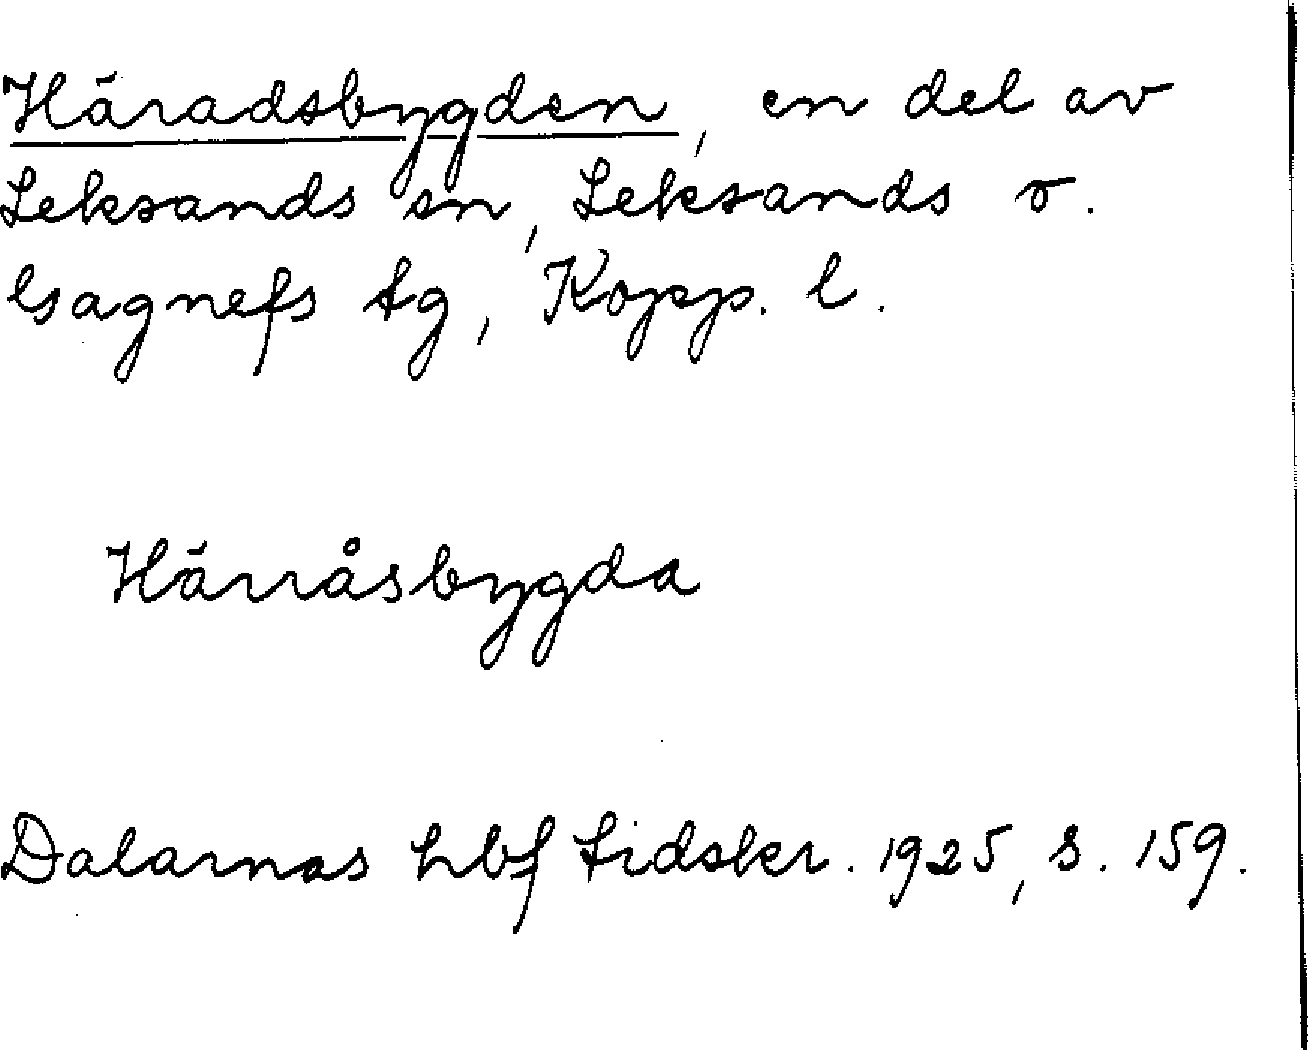 Häradsbygden, en del av
Leksands sn, Leksands o.
Gagnefs tg, Kopp. l.
Härråsbygda
Dalarnas hbf tidskr. 1925, s. 159.